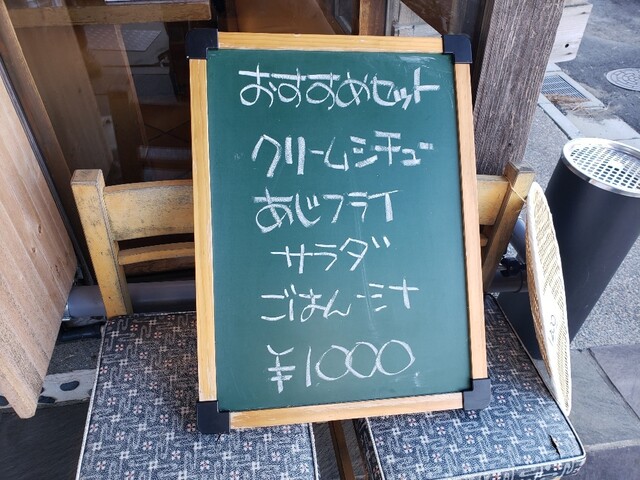 おすすめセット
クリームシチュー
あじフライ
サラダ
ごはん ミナ
¥1000